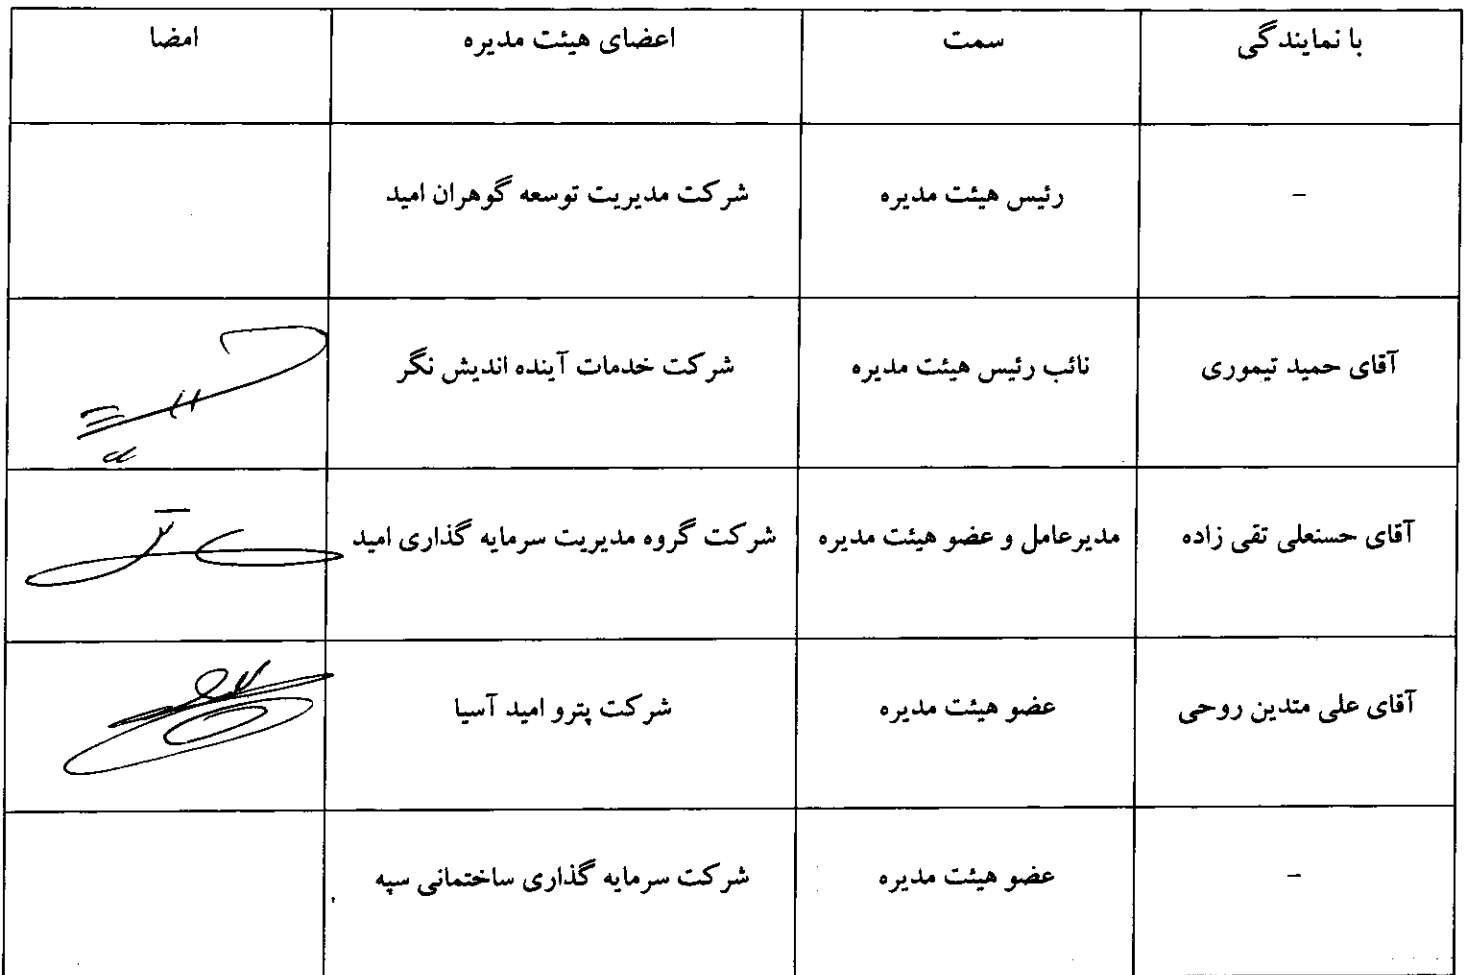 با نمایندگی سمت اعضای هیئت مدیره امضا
– رئیس هیئت مدیره شرکت مدیریت توسعه گوهران امید
آقای حمید تیموری نائب رئیس هیئت مدیره شرکت خدمات آینده اندیش نگر
آقای حسنعلی تقی زاده مدیرعامل و عضو هیئت مدیره شرکت گروه مدیریت سرمایه گذاری امید
آقای علی متدین روحی عضو هیئت مدیره شرکت پترو امید آسیا
– عضو هیئت مدیره شرکت سرمایه گذاری ساختمانی سپه